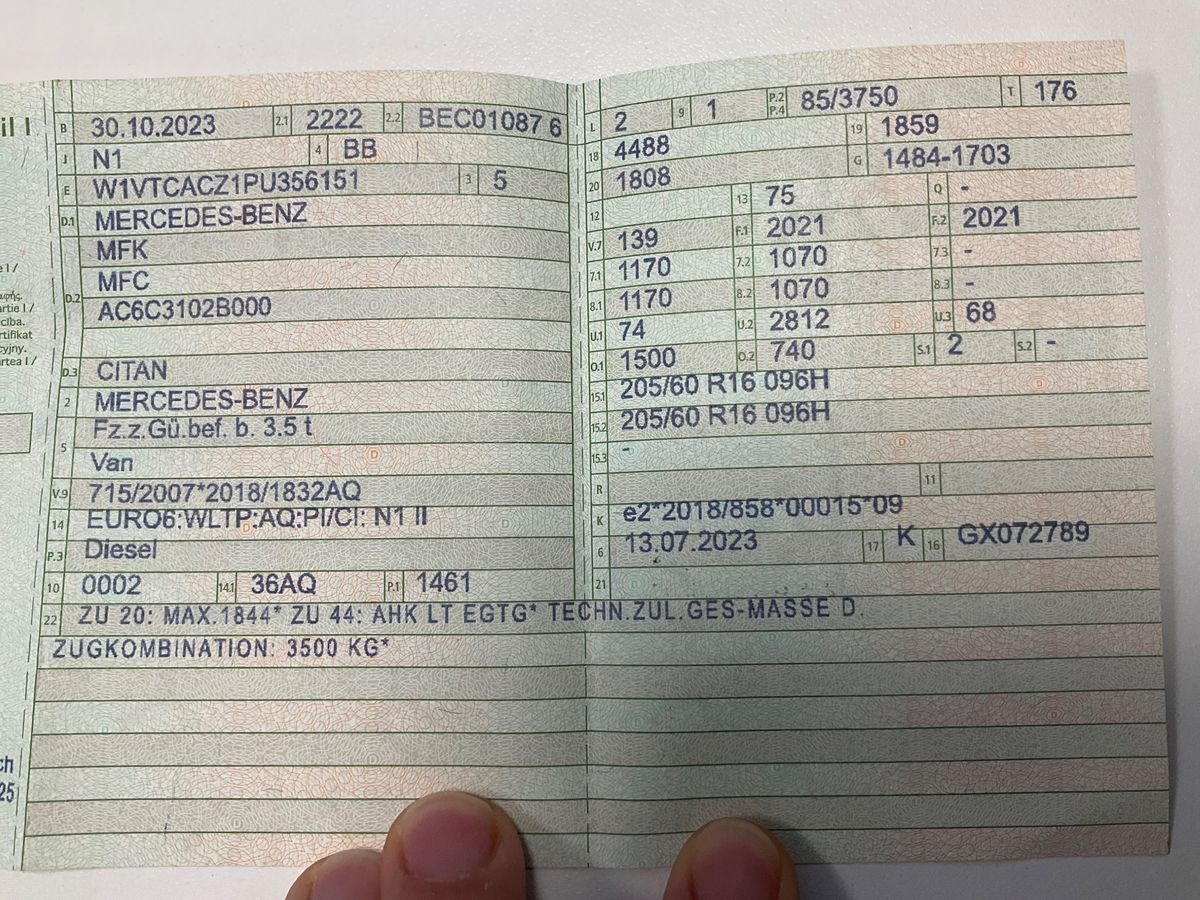 il I
B 30.10.2023 2.1 2222 2.2 BEC01087 6
J N1 4 BB
E W1VTCACZ1PU356151 3 5
D.1 MERCEDES-BENZ
MFK
MFC
D.2 AC6C3102B000
D.3 CITAN
2 MERCEDES-BENZ
5 Fz.z.Gü.bef. b. 3.5 t
Van
V.9 715/2007*2018/1832AQ
14 EURO6:WLTP:AQ:PI/CI: N1 II
P.3 Diesel
10 0002 14.1 36AQ P.1 1461
L 2 9 1 P.2 P.4 85/3750 T 176
18 4488 19 1859
20 1808 G 1484-1703
12 13 75 Q -
V.7 139 F.1 2021 F.2 2021
7.1 1170 7.2 1070 7.3 -
8.1 1170 8.2 1070 8.3 -
U.1 74 U.2 2812 U.3 68
O.1 1500 O.2 740 S.1 2 S.2 -
15.1 205/60 R16 096H
15.2 205/60 R16 096H
15.3 -
R 11
K e2*2018/858*00015*09
6 13.07.2023 17 K 16 GX072789
21
22 ZU 20: MAX.1844* ZU 44: AHK LT EGTG* TECHN.ZUL.GES-MASSE D.
ZUGKOMBINATION: 3500 KG*
e I /
артie I /
cība.
rtifikat
cyjny.
rtea I /
ch
25